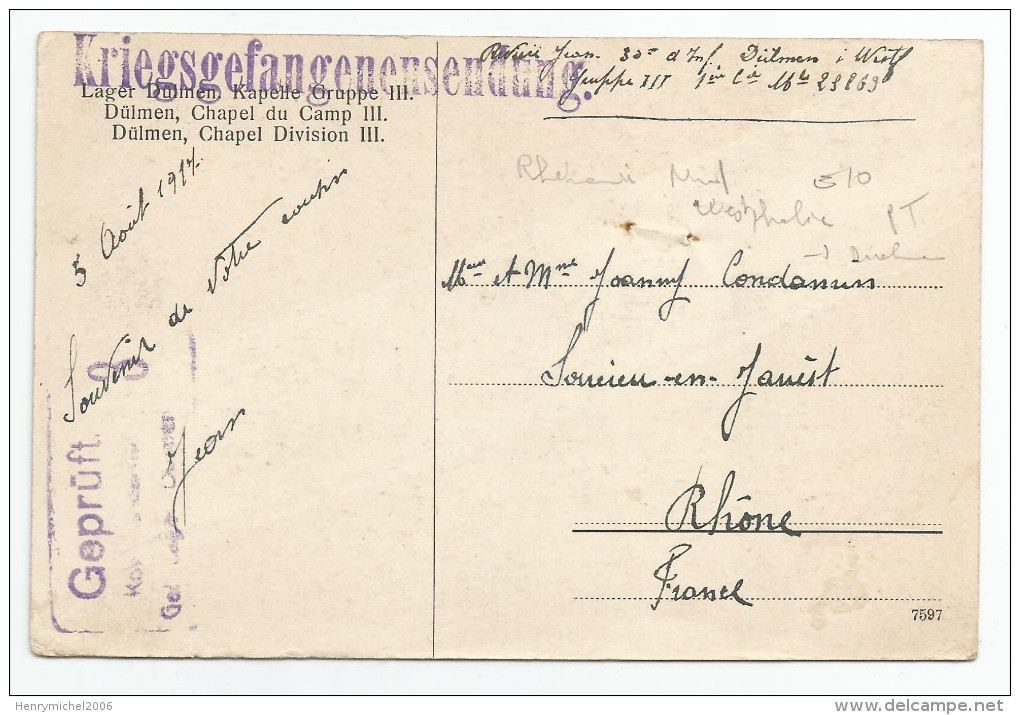 Kriegsgefangenensendung.
Lager Dülmen, Kapelle Gruppe III.
Dülmen, Chapel du Camp III.
Dülmen, Chapel Division III.
5 Août 1917.
Souvenir de votre cousin
Jean
Geprüft.
Jean. 30e d'Inf. Dülmen i Westf
Gruppe III 1ère Cie Mle 23869
Westphalie PT
Meur et Mme Joanny Condamin
Soucieu-en-Jarrest
Rhône
France
7597
Henrymichel2006